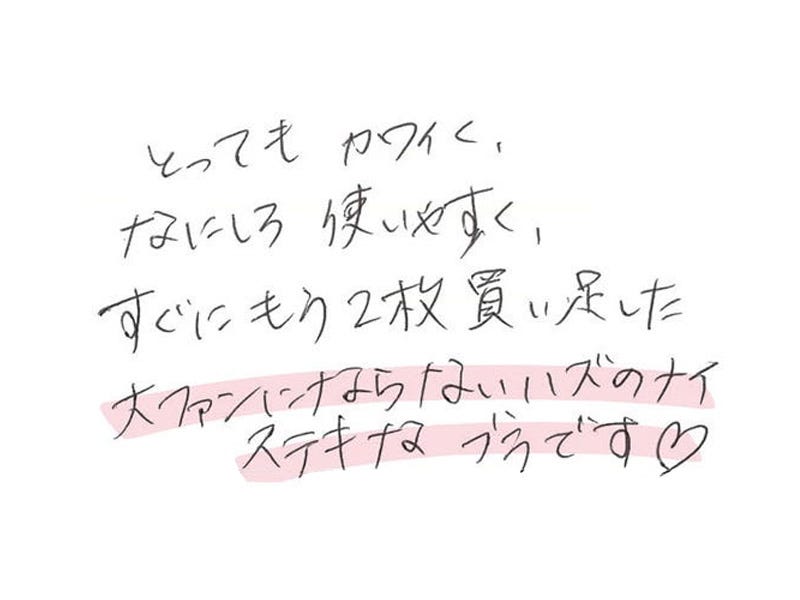 とっても カワイく、
なにしろ 使いやすく、
すぐにもう2枚買い足した
大ファンにならないハズのナイ
ステキな ブラです♡